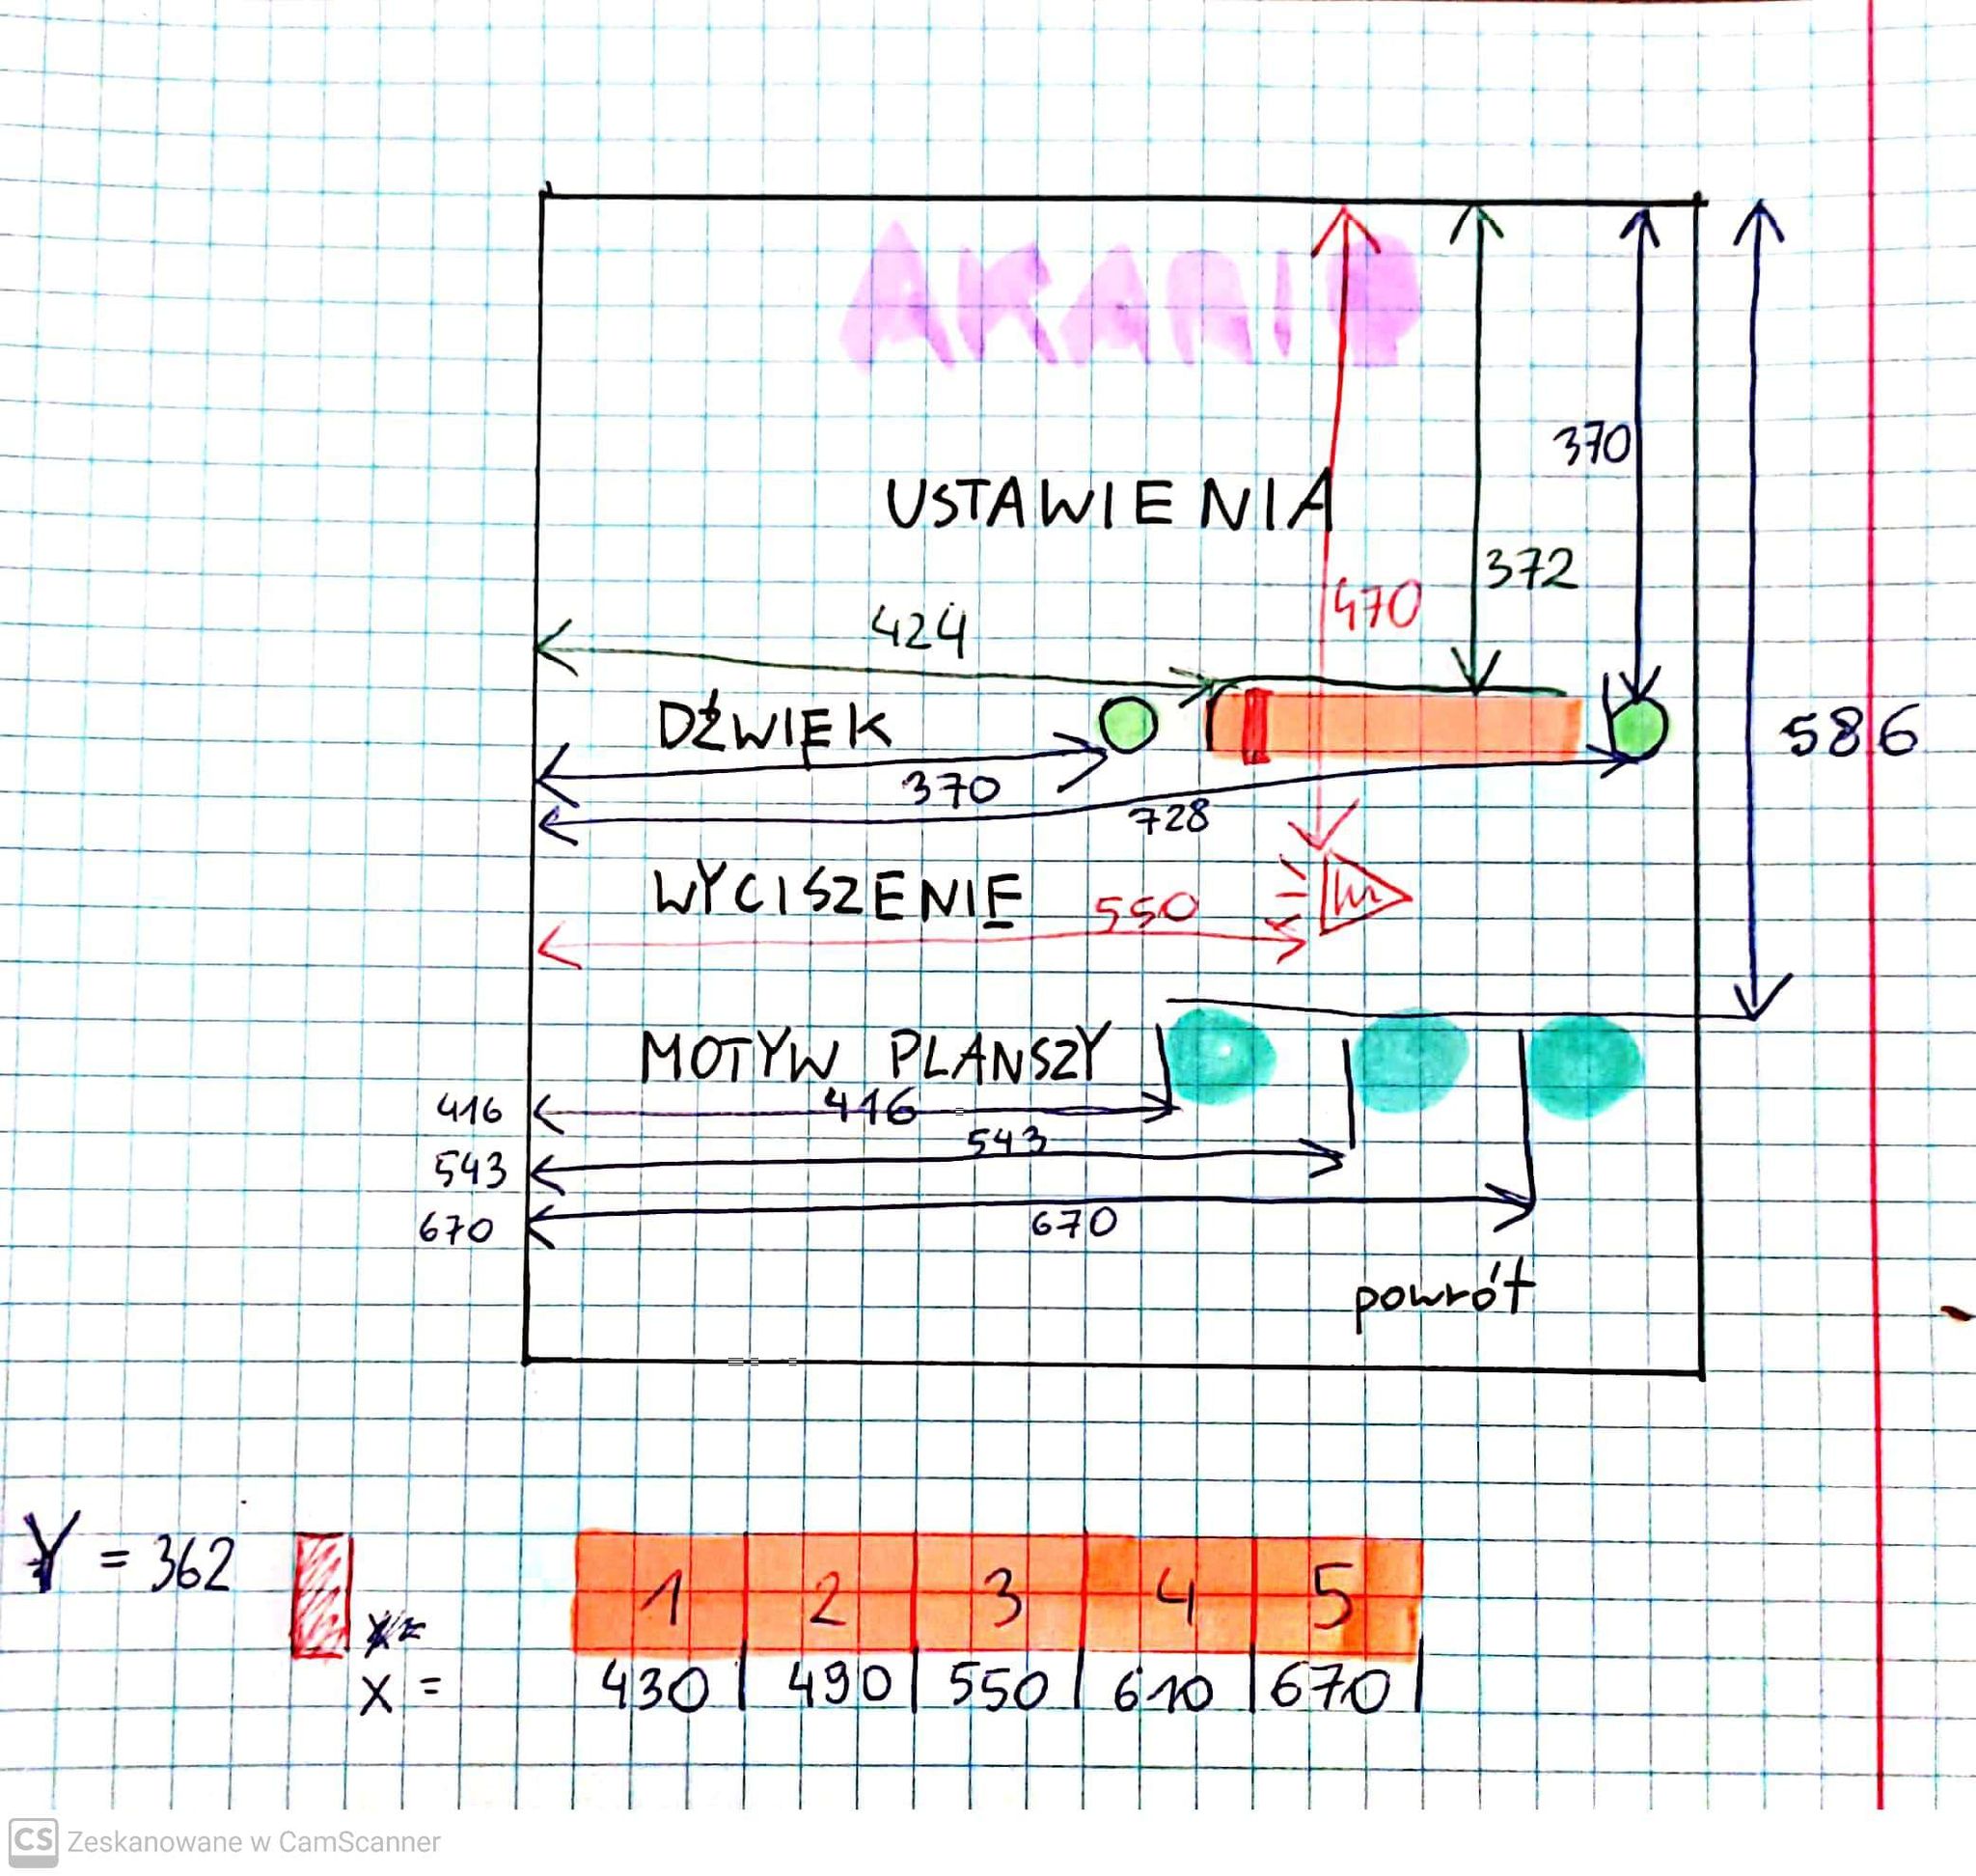 AKANIP
370
USTAWIENIA
372
470
424
DŹWIĘK
586
370
728
WYCISZENIE
550
MOTYW PLANSZY
416 416
543
543
670
670
powrót
Y = 362
1 2 3 4 5
X =
430 490 550 610 670
CS Zeskanowane w CamScanner